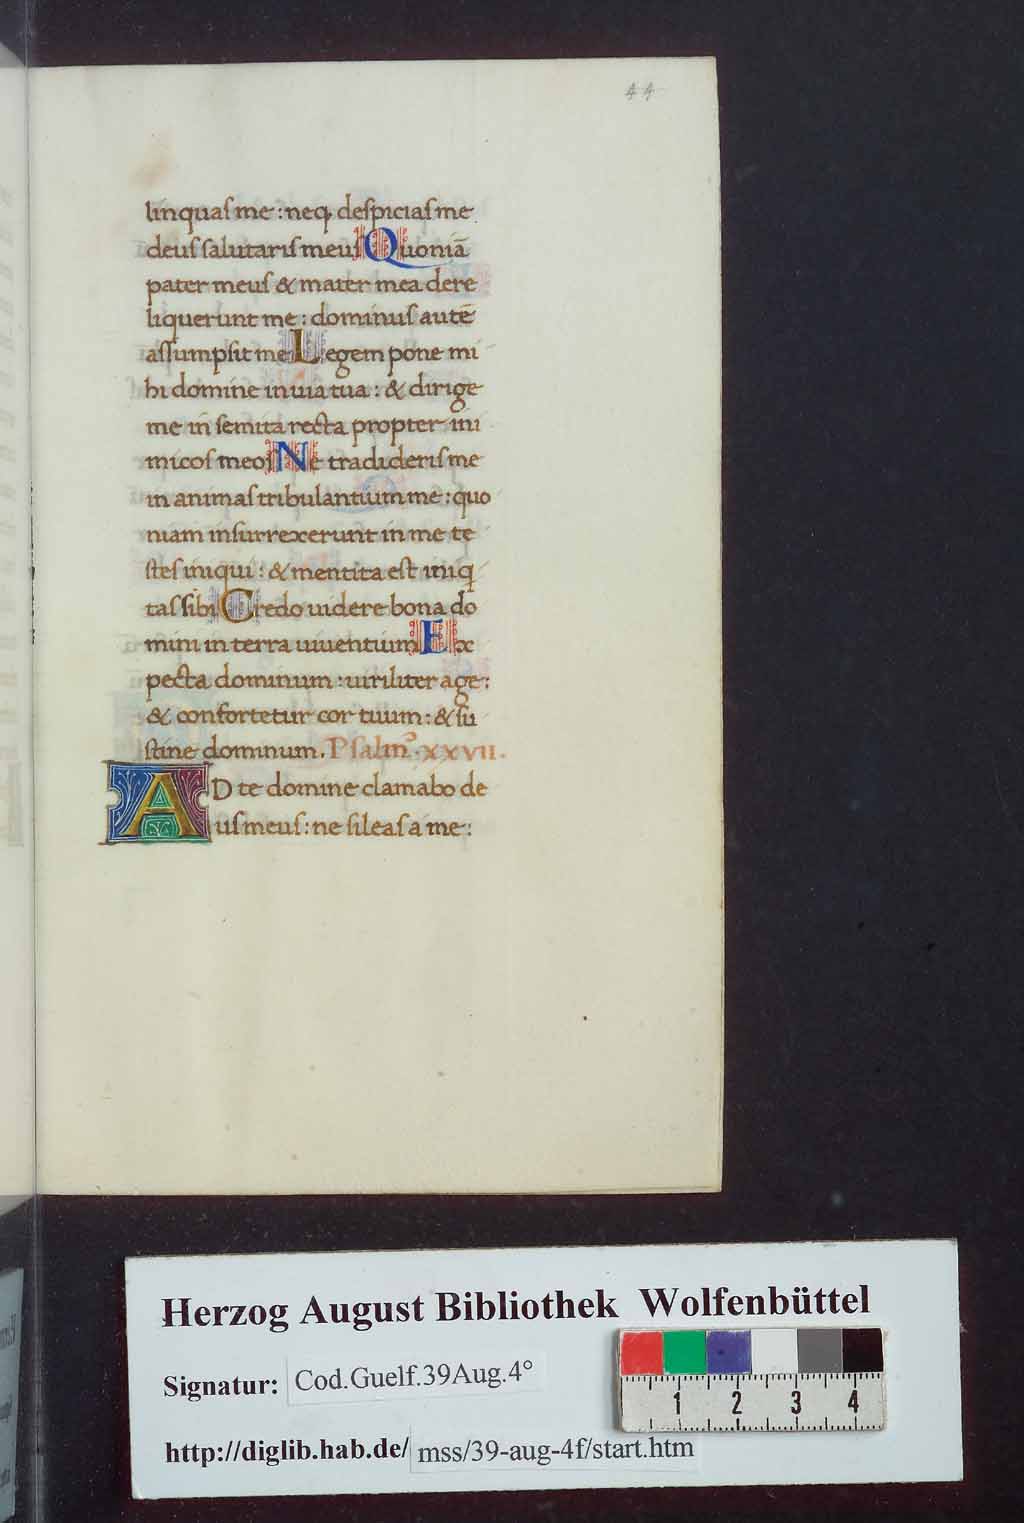 44
linquaſ me : neq; deſpiciaſ me
deuſ ſalutariſ meuſ Quoniā
pater meuſ & mater mea dere
liquerunt me : dominuſ autē
aſſumpſit me Legem pone mi
hi domine in uia tua : & dirige
me in ſemita recta propter ini
micoſ meoſ Ne tradideriſ me
in animaſ tribulantium me : quo
niam inſurrexerunt in me te
ſteſ iniqui : & mentita eſt iniq
taſ ſibi Credo uidere bona do
mini in terra uiuentium Ex
pecta dominum : uiriliter age :
& confortetur cor tuum : & ſu
ſtine dominum. Pſalmᵒ·xxvii.
AD te domine clamabo de
uſ meuſ : ne ſileaſ a me :
Herzog August Bibliothek Wolfenbüttel
Signatur: Cod.Guelf.39Aug.4°
1 2 3 4
http://diglib.hab.de/ mss/39-aug-4f/start.htm